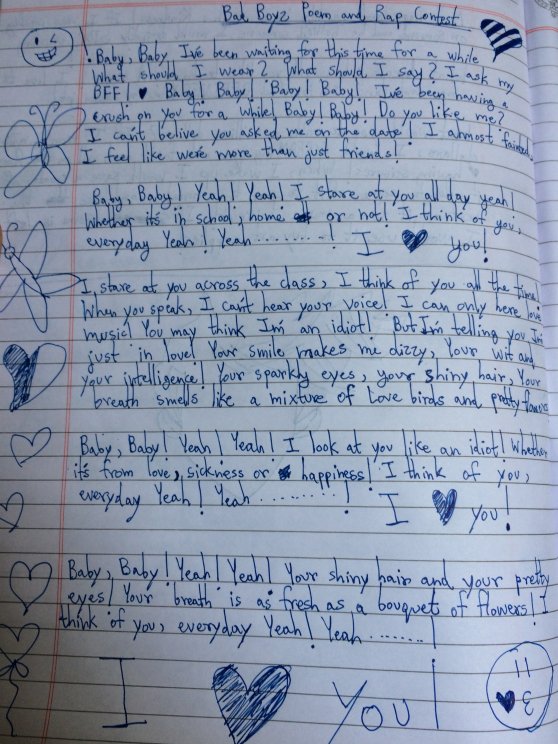 Bad Boyz Poem and Rap Contest
! Baby, Baby I've been waiting for this time for a while
What should I wear? What should I say? I ask my
BFF! ♥ Baby! Baby! Baby! Baby! I've been having a
crush on you for a while! Baby! Baby! Do you like me?
I can't belive you asked me on the date! I almost fainted.
I feel like we're more than just friends!
Baby, Baby! Yeah! Yeah! I stare at you all day yeah!
Whether it's in school, home or not! I think of you,
everyday Yeah! Yeah.........! I ♥ you!
I stare at you across the class, I think of you all the time!
When you speak, I can't hear your voice! I can only here love
music! You may think I'm an idiot! But I'm telling you I'm
just in love! Your smile makes me dizzy, Your wit and
your intelligence! Your sparky eyes, your shiny hair, Your
breath smells like a mixture of Love birds and pretty flowers
Baby, Baby! Yeah! Yeah! I look at you like an idiot! Whether
it's from love, sickness or happiness! I think of you,
everyday Yeah! Yeah..........! I ♥ you!
Baby, Baby! Yeah! Yeah! Your shiny hair and your pretty
eyes! Your breath is as fresh as a bouquet of flowers! I
think of you, everyday Yeah! Yeah.......!
I ♥ YOU!